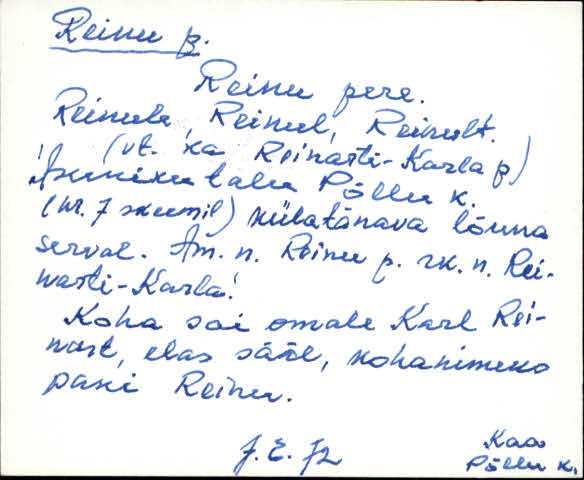 Reinu p.
Reinu pere.
Reinule, Reinul, Reinult.
(vt. ka Reinasti-Karla p)
Asuniku talu Põllu k.
(nr. 7 skeemil) külatänava lõuna
serval. Am. n. Reinu p. rk. n. Rei-
nasti-Karla!
Koha sai omale Karl Rei-
nast, elas sääl, kohanimeks
pani Reinu.
Kaa
Põllu k.